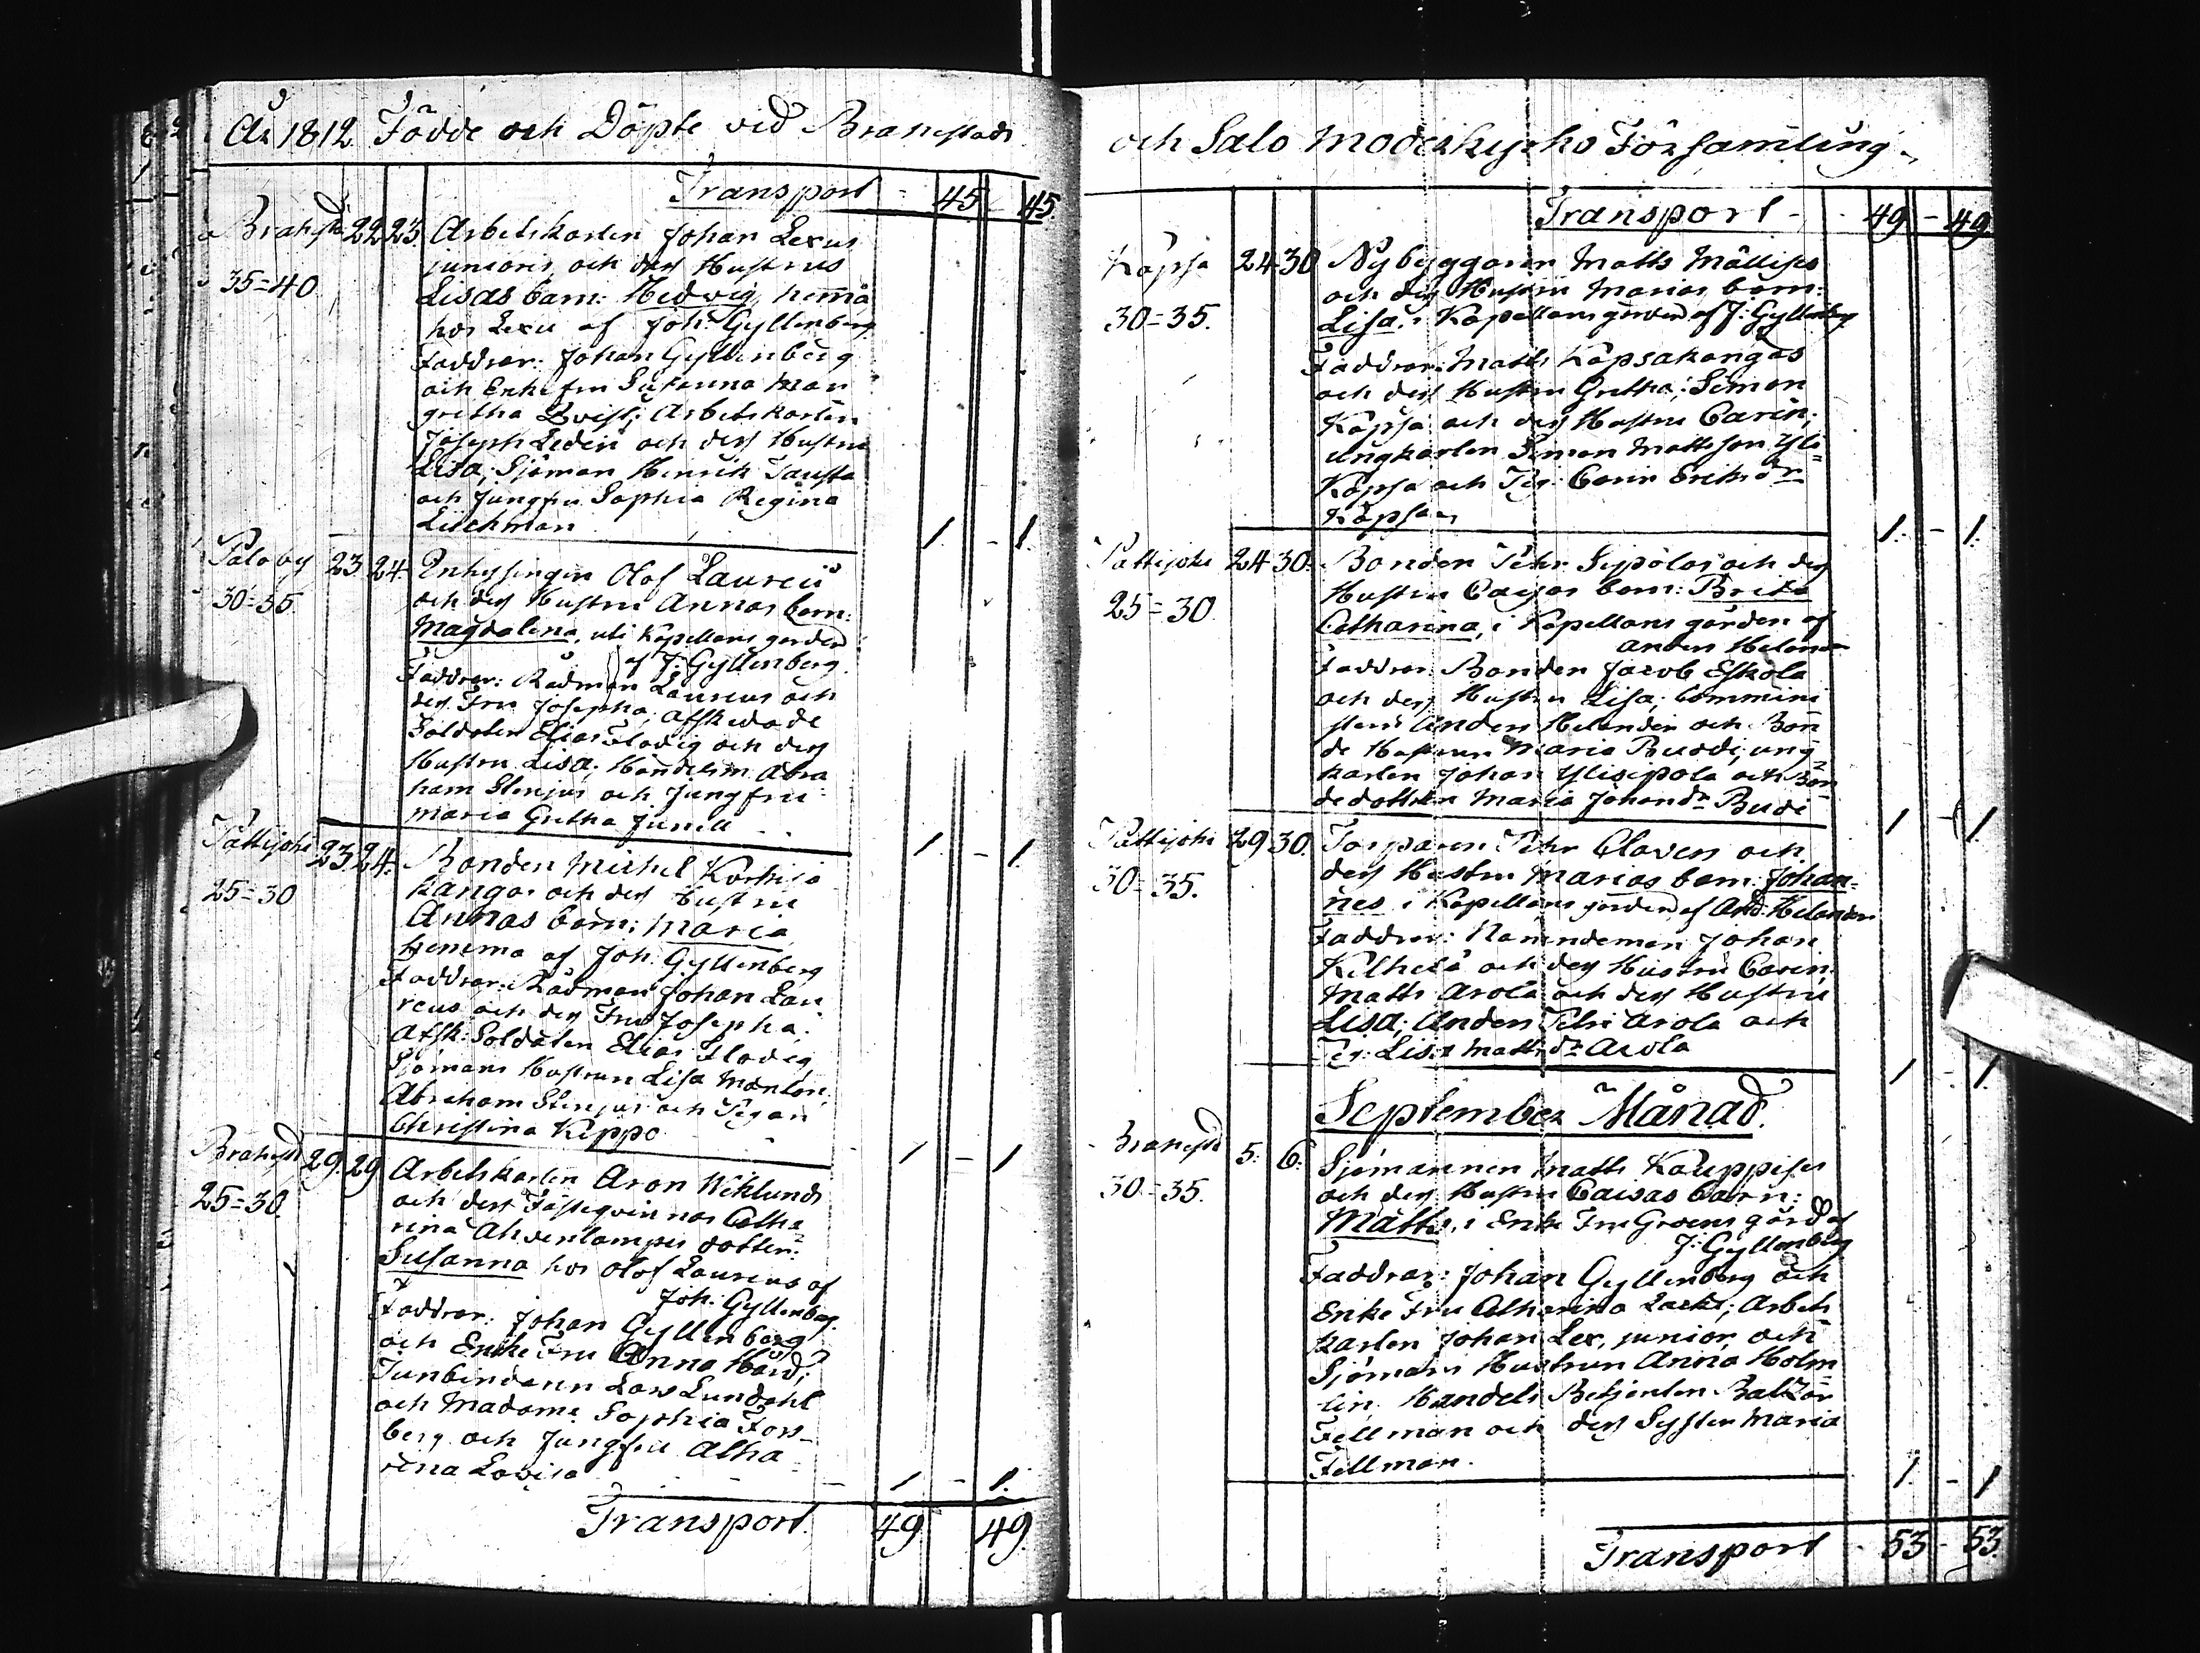 År 1812 Födde och Döpte vid Brahestads
Transport - 45 45.
Brahestad 22 23. Arbetskarlen Johan Lexus
junioris, och dess Hustrus
35=40 Lisas barn: Hedvig, hemma
hos Lexu af Joh: Gyllenberg
Faddrar: Johan Gyllenberg
och Enkefru Susanna Mar
gretha Qvist; Arbetskarlen
Joseph Ledin och dess Hustru
Lisa; Sjöman Henrik
och Jungfru Sophia Regina
1. - 1.
Paloby 23 24. Olof Laurei
30=35. och dess Hustru Annas barn:
Magdalena, uti Kapellans gården
af J: Gyllenberg.
Faddrar: Rådman Laureus och
dess Fru Josepha; afskedade
Soldaten Elias Flodig och dess
Hustru Lisa; Handelsm Abra
ham Stenjus och Jungfru
Maria Gretha Junell
1. - 1.
Pattijoki 23 24. Bonden Michel
25=30 kangas och dess Hustru
Annas barn: Maria
hemma af Joh: Gyllenberg
Faddrar: Rådman Johan Lau
reus och dess Fru Josepha;
Afsk: Soldaten Elias Flodig
Sjömans Hustrun Lisa
Abraham Stenjus och Pigan
Christina Keppo
1 - 1
Brahestad 29. 29 Arbetskarlen Aron Wiklunds
25=30. och dess Fästeqvinnas Catha
rina Ahvenlampis dotter:
Susanna hos Olof Laureus af
Joh: Gyllenberg.
Faddrar: Johan Gyllenberg
och Enke Fru Anna Hård;
Tunbindaren Lars Lundahl
och Madame Sophia Fors-
berg och Jungfru Catha
rina Lovisa
- 1 - 1.
Transport. 49 49.
och Salo Moderkyrko Församling.
Transport - 49 - 49
Kopsa 24 30 Nybyggaren Matts Mällises
och dess Hustru Marias barn:
30=35. Lisa i Kapellans gården af J: Gyllenberg
Faddrar: Matts Kopsakangas
och dess Hustru Gretha; Simon
Kopsa och dess Hustru Carin;
ungkarlen Simon Mattsson Yli=
Kopsa och Pig: Carin Eriksdr
Kopsa
1. - 1.
Pattijoki 24 30. Bonden Pehr Sipolas och dess
25=30 Hustru Caysas barn: Brita
Catharina, i Kapellans gården af
Anders Helander
Faddrar: Bonden Jacob Eskola
och dess Hustru Lisa; Commini
stern Anders Helander och Bon
de Hustrun Maria Buddi; ung
karlen Johan Ylisipola och Bon
dedottren Maria Johansdr Budi
1 - 1.
Pattijoki 29 30. Torparen Pehr Clavers och
30=35. dess Hustru Marias barn: Johan-
nes i Kapellans gården af And: Helander
Faddrar: Nämndeman Johan
Kilhelä och dess Hustru Carin
Matts Arola och dess Hustru
Lisa; Anders Pehr Arola och
Pig: Lisa Mattsdr Arola
1 - 1
September Månad.
Brahestad 5: 6: Sjömannen Matts Kauppises
30=35. och dess Hustru Caisas barn:
Matts, i Enke Fru Groens gård af
J: Gyllenberg
Faddrar: Johan Gyllenberg och
Enke Fru Catharina; Arbets
karlen Johan Lex, junior och
Sjömans Hustrun Anna Holm
lin. Handels Betjenten Baltzar
Fellman och dess Syster Maria
Fellman.
1. - 1
Transport - 53 - 53.